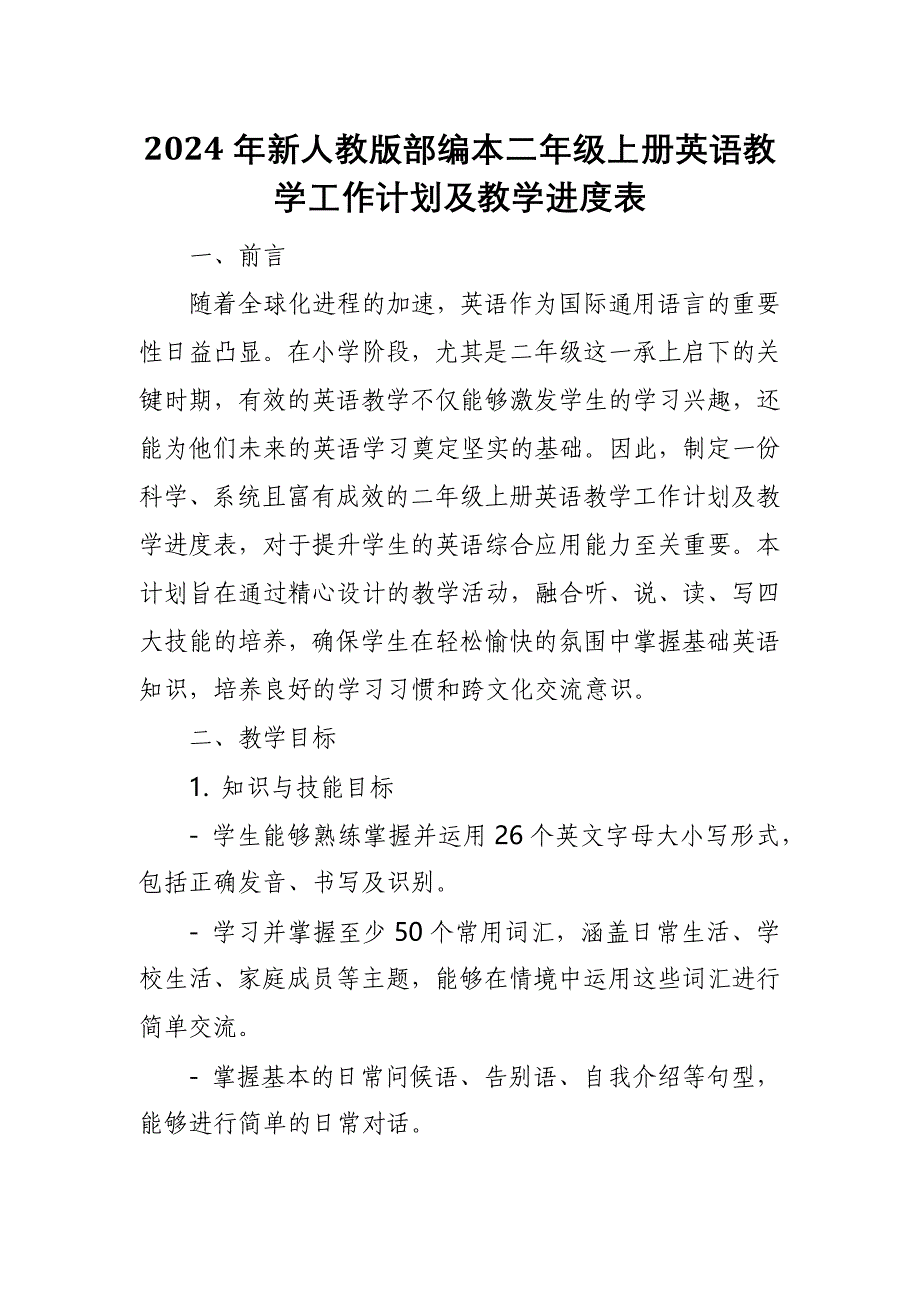 2024 年新人教版部编本二年级上册英语教
学工作计划及教学进度表
一、前言
随着全球化进程的加速，英语作为国际通用语言的重要
性日益凸显。在小学阶段，尤其是二年级这一承上启下的关
键时期，有效的英语教学不仅能够激发学生的学习兴趣，还
能为他们未来的英语学习奠定坚实的基础。因此，制定一份
科学、系统且富有成效的二年级上册英语教学工作计划及教
学进度表，对于提升学生的英语综合应用能力至关重要。本
计划旨在通过精心设计的教学活动，融合听、说、读、写四
大技能的培养，确保学生在轻松愉快的氛围中掌握基础英语
知识，培养良好的学习习惯和跨文化交流意识。
二、教学目标
1. 知识与技能目标
- 学生能够熟练掌握并运用 26 个英文字母大小写形式，
包括正确发音、书写及识别。
- 学习并掌握至少 50 个常用词汇，涵盖日常生活、学
校生活、家庭成员等主题，能够在情境中运用这些词汇进行
简单交流。
- 掌握基本的日常问候语、告别语、自我介绍等句型，
能够进行简单的日常对话。